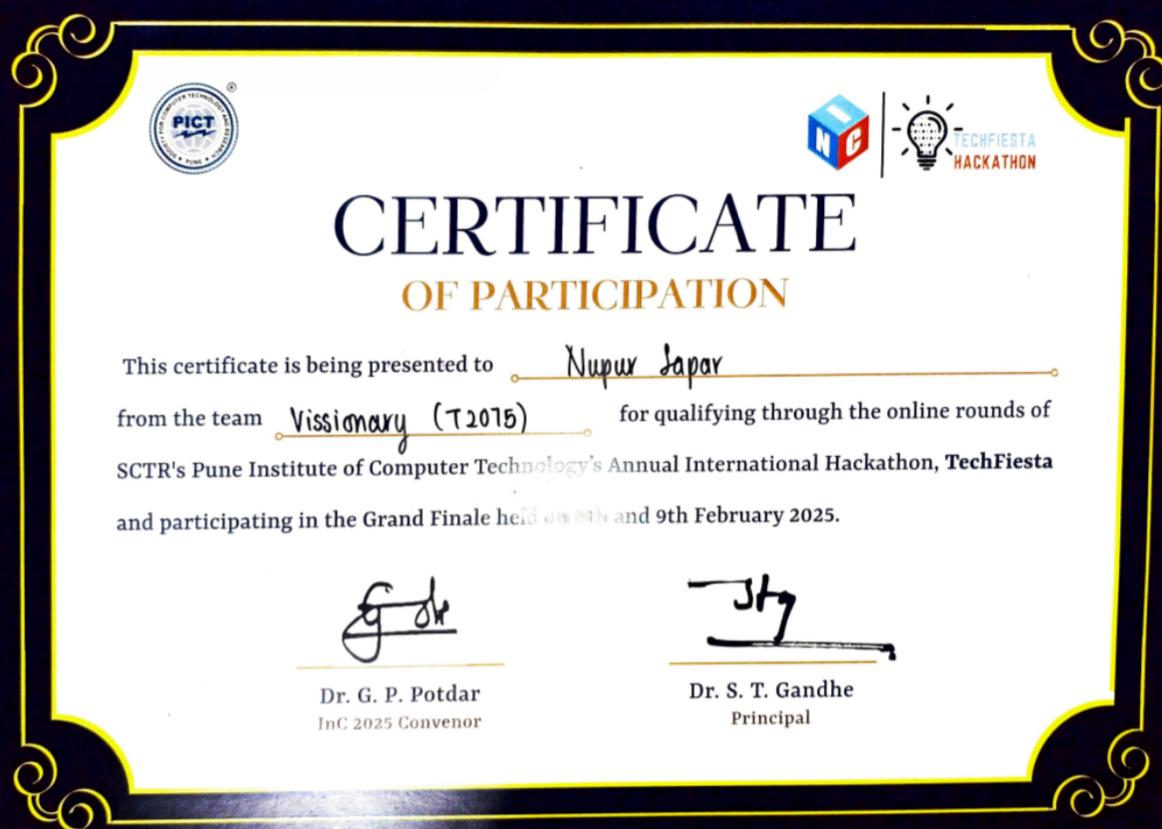 SOCIETY FOR COMPUTER TECHNOLOGY AND RESEARCH
PICT
PUNE
®
INC
TECHFIESTA
HACKATHON
CERTIFICATE
OF PARTICIPATION
This certificate is being presented to Nupur Sapar
from the team Vissionary (T2075) for qualifying through the online rounds of
SCTR's Pune Institute of Computer Technology's Annual International Hackathon, TechFiesta
and participating in the Grand Finale held on 8th and 9th February 2025.
Dr. G. P. Potdar
InC 2025 Convenor
Dr. S. T. Gandhe
Principal